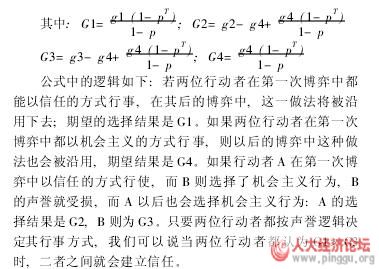 其中: G1= g1 (1- p^T) / 1- p ; G2= g2- g4+ g4 (1- p^T) / 1- p ;
G3= g3- g4+ g4 (1- p^T) / 1- p ; G4= g4 (1- p^T) / 1- p
公式中的逻辑如下: 若两位行动者在第一次博弈中都
能以信任的方式行事, 在其后的博弈中, 这一做法将被沿
用下去; 期望的选择结果是 G1。如果两位行动者在第一次
博弈中都以机会主义的方式行事, 则以后的博弈中这种做
法也会被沿用, 期望结果是 G4。如果行动者 A 在第一次博
弈中以信任的方式行使, 而 B 则选择了机会主义行为, B
的声誉就受损, 而 A 以后也会选择机会主义行为: A 的选
择结果是 G2, B 则为 G3。只要两位行动者都按声誉逻辑决
定其行事方式, 我们可以说当两位行动者都认为
时, 二者之间就会建立信任。
人大经济论坛
www.pinggu.org